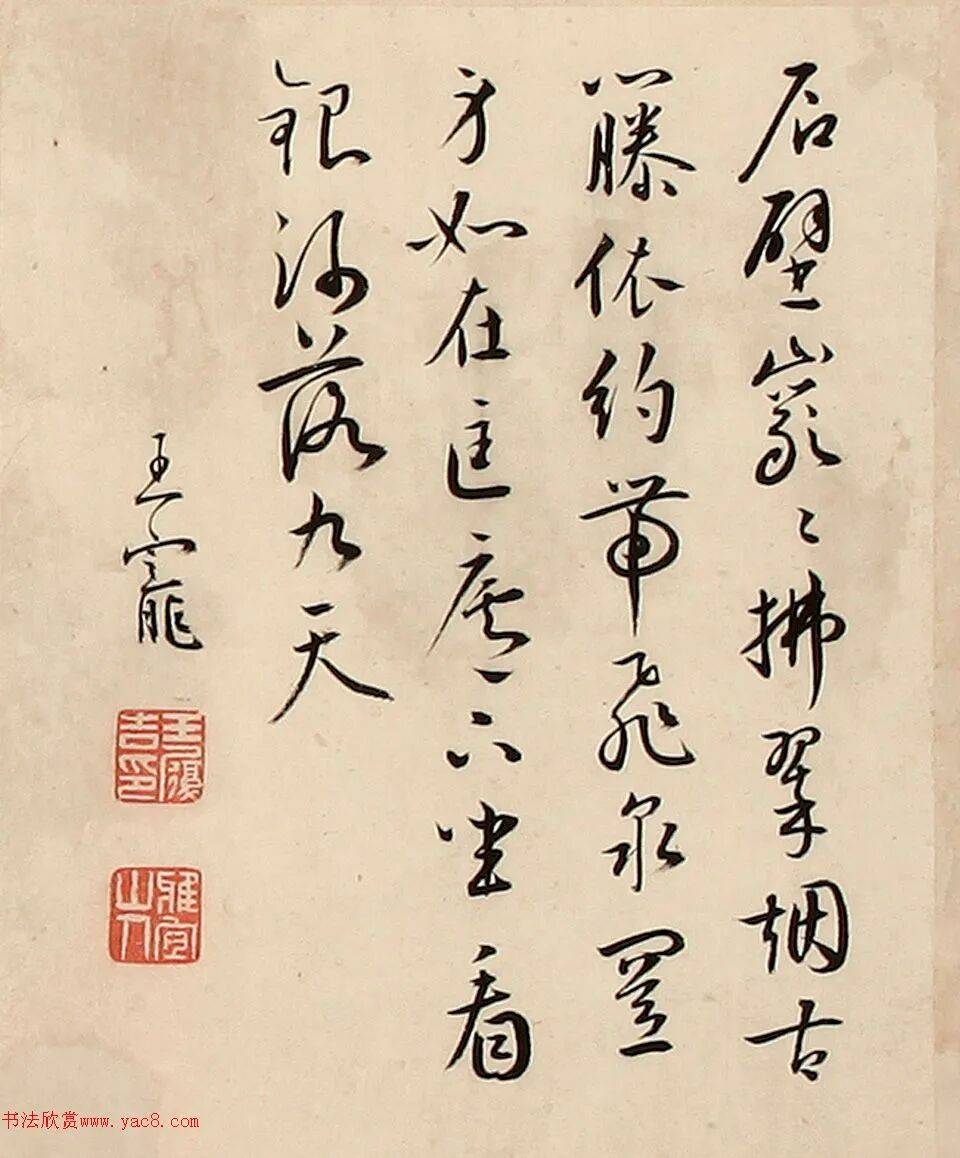 石壁巖〻拂翠烟古
藤依約帶飛泉置
身如在匡廬下坐看
銀河落九天
王寵
王履吉印
雅宜山人
书法欣赏www.yac8.com